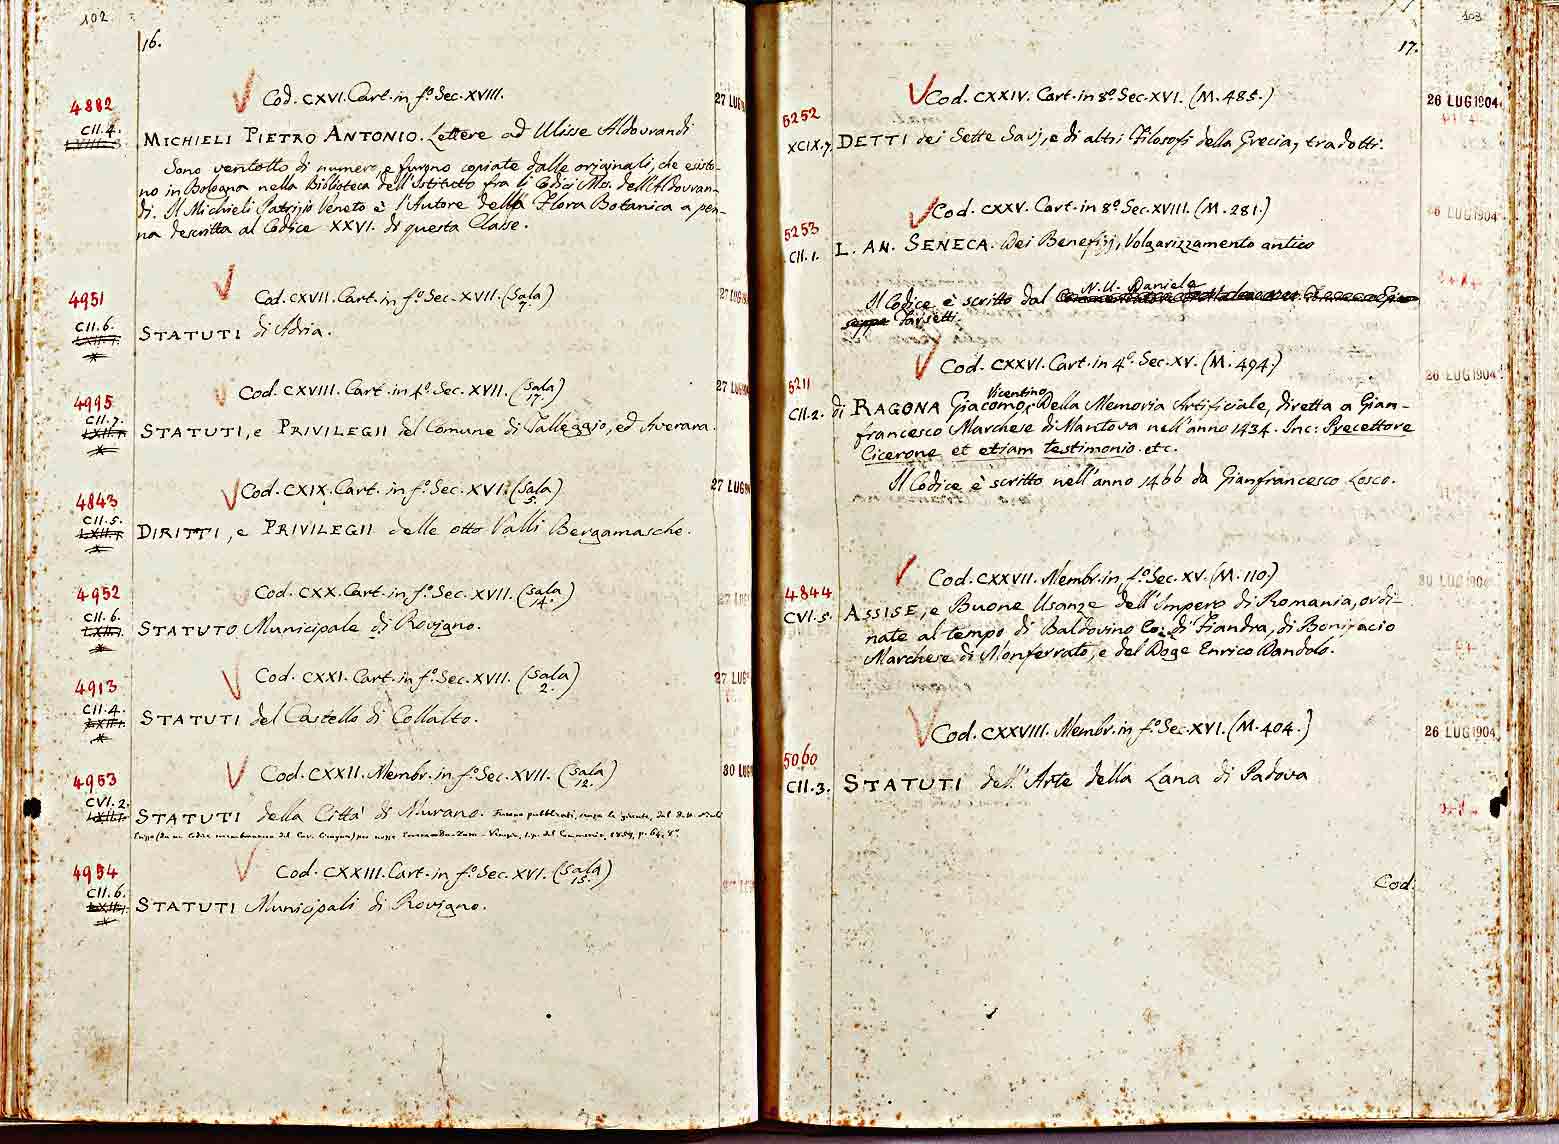 102
16.
Cod. CXVI. Cart. in fo. Sec. XVIII.
27 LUG
4882
CII.4.
MICHIELI PIETRO ANTONIO. Lettere ad Ulisse Aldovrandi
Sono ventotto di numero, e furono copiate dalle originali, che esisto-
no in Bologna nella Biblioteca dell'Istituto fra li Codici Mss. dell'Aldovran-
di. Il Michieli Patrizio Veneto è l'Autore della Flora Botanica a pen-
na descritta al Codice XXVI. di questa Classe.
Cod. CXVII. Cart. in fo. Sec. XVII. (Sala 7.)
27 LUG
4951
CII.6.
STATUTI di Adria.
Cod. CXVIII. Cart. in 4o. Sec. XVII. (Sala 17.)
27 LUG
4995
CII.7.
STATUTI, e PRIVILEGII del Comune di Talleggio, ed Averara.
Cod. CXIX. Cart. in fo. Sec. XVI. (Sala 5.)
27 LUG
4843
CII.5.
DIRITTI, e PRIVILEGII delle otto Valli Bergamasche.
Cod. CXX. Cart. in fo. Sec. XVII. (Sala 14.)
27 LUG
4952
CII.6.
STATUTO Municipale di Rovigno.
Cod. CXXI. Cart. in fo. Sec. XVII. (Sala 2.)
27 LUG
4913
CII.4.
STATUTI del Castello di Collalto.
Cod. CXXII. Membr. in fo. Sec. XVII. (Sala 12.)
30 LUG
4953
CVI.2.
STATUTI della Città di Murano. Furono pubblicati,
4954
Cod. CXXIII. Cart. in fo. Sec. XVI. (Sala 15.)
CII.6.
STATUTI Municipali di Rovigno.
103
17.
Cod. CXXIV. Cart. in 8o. Sec. XVI. (M. 485.)
26 LUG 1904
5252
XCIX.7.
DETTI dei Sette Savj, e di altri Filosofi della Grecia, tradotti.
Cod. CXXV. Cart. in 8o. Sec. XVIII. (M. 281.)
26 LUG 1904
5253
CII.1.
L. AN. SENECA. Dei Benefizj, Volgarizzamento antico
N.U. Daniele
Il Codice è scritto dal
Farsetti.
Cod. CXXVI. Cart. in 4o. Sec. XV. (M. 494.)
26 LUG 1904
5211
Vicentino
CII.2.
di RAGONA Giacomo, Della Memoria Artificiale, diretta a Gian-
francesco Marchese di Mantova nell'anno 1434. Inc: Precettore
Cicerone et etiam testimonio. etc.
Il Codice è scritto nell'anno 1466 da Gianfrancesco Losco.
Cod. CXXVII. Membr. in fo. Sec. XV. (M. 110.)
30 LUG 1904
4844
CVI.5.
ASSISE, e Buone Usanze dell'Impero di Romania, ordi-
nate al tempo di Baldovino Co: di Fiandra, di Bonifacio
Marchese di Monferrato, e del Doge Enrico Dandolo.
Cod. CXXVIII. Membr. in fo. Sec. XVI. (M. 404.)
26 LUG 1904
5060
CII.3.
STATUTI dell'Arte della Lana di Padova
Cod.